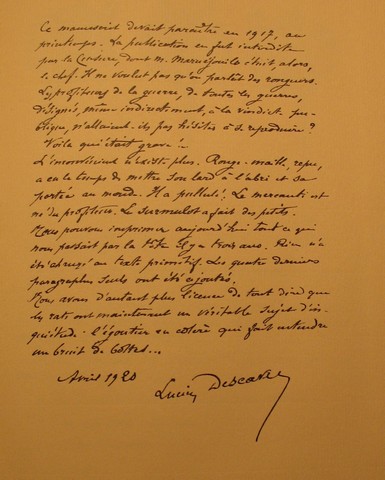 Ce manuscrit devait paraître en 1917, au
printemps. La publication en fut interdite
par la Censure, dont M. Marcel était, alors,
le chef. Il ne voulut pas qu'on parlât des rongeurs.
Les profiteurs de la guerre, de toutes les guerres,
désignés, même indirectement, à la vindicte pu-
blique, n'allaient-ils pas hésiter à se reproduire ?
Voilà qui était grave !
L'inconvénient n'existe plus. Ronge-maille, repu,
a eu le temps de mettre son lard à l'abri et sa
portée au monde. Il a pullulé ! Le mercanti est
né du profiteur. Le surmulot a fait des petits.
Nous pouvons imprimer aujourd'hui tout ce qui
nous passait par la tête il y a trois ans. Rien n'a
été changé au texte primitif. Les quatre derniers
paragraphes seuls ont été ajoutés.
Nous avons d'autant plus licence de tout dire que
les rats ont maintenant un véritable sujet d'in-
quiétude : l'égoutier en colère qui fait entendre
un bruit de bottes...
Avril 1920
Lucien Descaves